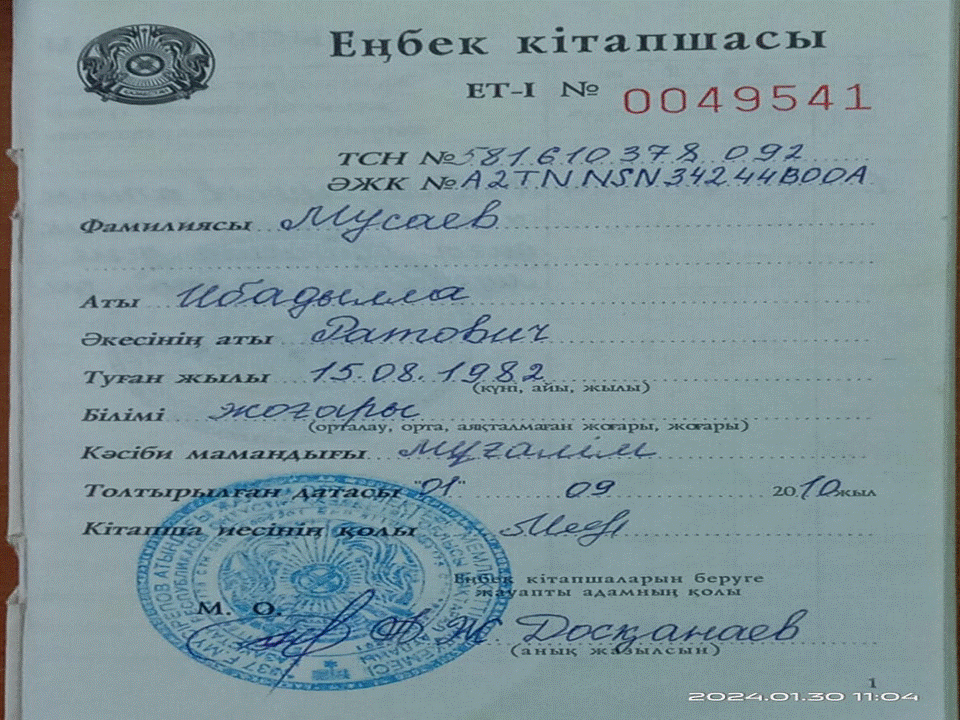 Еңбек кітапшасы
ЕТ-I № 0049541
ТСН № 581610378 092
ӘЖК № A2TNNSN34244B00A
Фамилиясы Мусаев
Аты Ибадылла
Әкесінің аты Ратович
Туған жылы 15.08.1982
(күні, айы, жылы)
Білімі жоғары
(орталау, орта, аяқталмаған жоғары, жоғары)
Кәсіби мамандығы мұғалім
Толтырылған датасы "01" 09 2010 жыл
Кітапша иесінің қолы
Еңбек кітапшаларын беруге
жауапты адамның қолы
М. О.
А. Ж. Досқанаев
(анық жазылсын)
1
2024.01.30 11:04